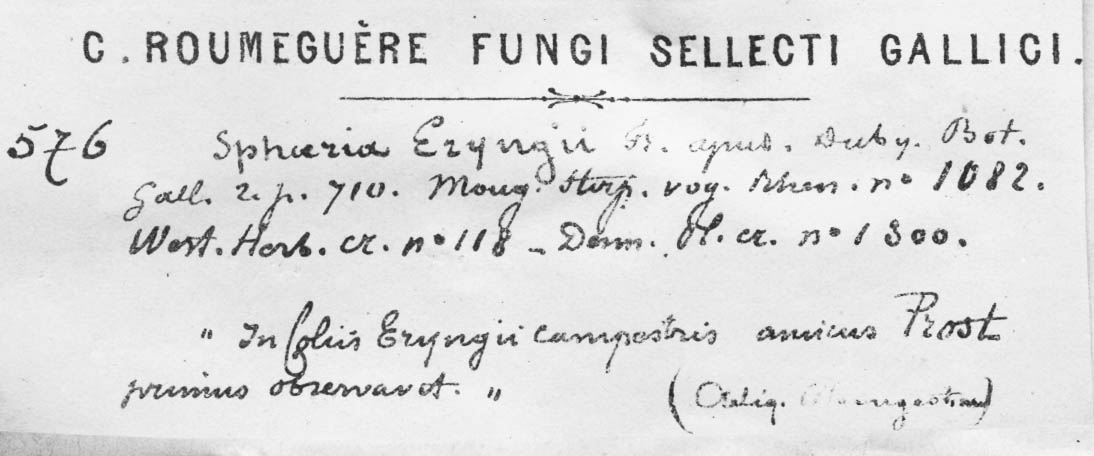 C. ROUMEGUÈRE FUNGI SELLECTI GALLICI.
576 Sphæria Eryngii Fr. apud. Duby. Bot.
Gall. 2. p. 710. Moug. Stirp. vog. Rhen. nº 1082.
West. Herb. cr. nº 118 - Desm. Pl. cr. nº 1300.
" In foliis Eryngii campestris amicus Prost
primus observavit. " (Reliq.